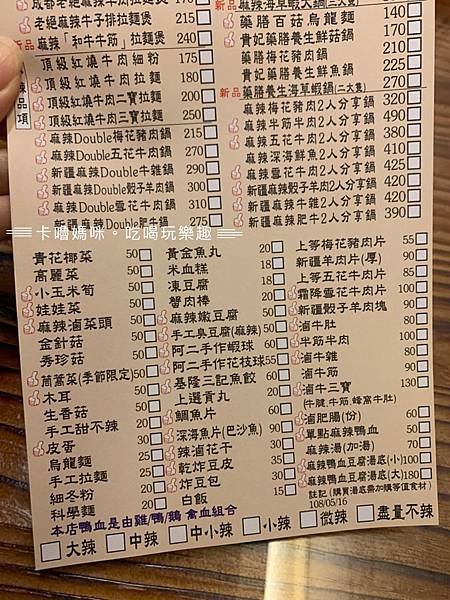 成都老絕麻辣牛肉拉麵煲 215
老絕麻辣牛子排拉麵煲 240
新品 麻辣「和牛牛筋」拉麵煲
頂級紅燒牛肉細粉 175
頂級紅燒牛肉拉麵 180
頂級紅燒牛肉二寶拉麵 200
頂級紅燒牛肉三寶拉麵 250
麻辣Double梅花豬肉鍋 215
麻辣Double五花牛肉鍋 270
新疆麻辣Double牛雜鍋 290
新疆麻辣Double骰子羊肉鍋 300
麻辣Double雪花牛肉鍋 310
新疆麻辣Double肥牛鍋 275
麻辣海草蝦大鍋(三人食)
藥膳百菇烏龍麵 140
貴妃藥膳養生鮮菇鍋 170
藥膳梅花豬肉鍋
貴妃藥膳養生鮮魚鍋 220
新品 藥膳養生海草蝦鍋(二大隻) 270
麻辣梅花豬肉2人分享鍋 320
麻辣半筋半肉2人分享鍋 490
麻辣五花牛肉2人分享鍋 380
麻辣深海鮮魚2人分享鍋 410
麻辣雪花牛肉2人分享鍋 425
新疆麻辣骰子羊肉2人分享鍋 420
新疆麻辣牛雜2人分享鍋 420
新疆麻辣肥牛2人分享鍋 390
卡嚕媽咪。吃喝玩樂趣
貴花椰菜 50
高麗菜 50
小玉米筍 50
娃娃菜 50
麻辣滷菜頭 50
金針菇 50
秀珍菇 50
茼蒿菜(季節限定) 50
木耳 50
生香菇 60
手工甜不辣 20
皮蛋 30
烏龍麵 25
手工拉麵 25
細冬粉 20
科學麵 20
黃金魚丸 20
米血糕 30
凍豆腐
蟹肉棒
麻辣嫩豆腐
手工臭豆腐(麻辣)
阿二手作蝦球 60
阿二手作花枝球 55
基隆三記魚餃 60
上選貢丸
鯛魚片
深海魚片(巴沙魚) 90
辣滷花干 30
乾炸豆皮 30
炸豆包
白飯 15
上等梅花豬肉片 55
新疆羊肉片(厚) 90
上等五花牛肉片
霜降雪花牛肉片 100
新疆骰子羊肉塊 90
滷牛肚
半筋半肉 100
滷牛雜 80
滷牛筋
滷牛三寶 130
(牛腱.牛筋.蜂窩牛肚)
滷肥腸(份) 60
單點麻辣鴨血 50
麻辣湯(加湯) 70
麻辣鴨血豆腐湯底(小) 100
麻辣鴨血豆腐湯底(大) 180
註記(購買湯底需加購等值食材)
108/05/16
本店鴨血是由雞/鴨/鵝 禽血組合
大辣 中辣 中小辣 小辣 微辣 盡量不辣